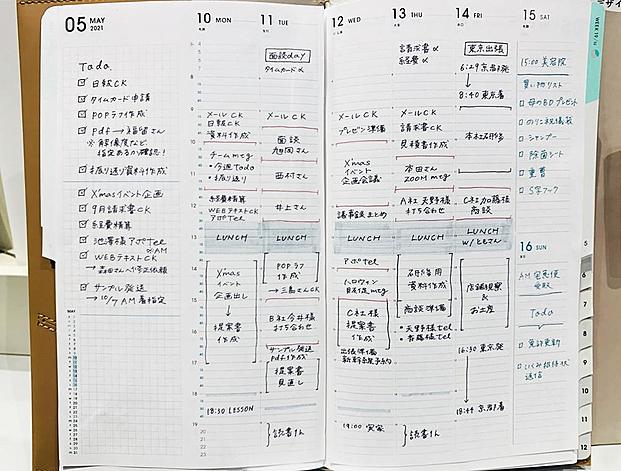 05 MAY
2021
Todo.
日報CK
タイムカード申請
POPラフ作成
Pdf→稲留さん
※解像度など
指定あるか確認!
振り返り資料作成
X'masイベント企画
9月請求書CK
経費精算
池澤様アポTel
WEBテキストCK
サンプル発送
→10/7 AM着指定
MAY
10 MON
メールCK
日報CK
資料作成
チームmtg
・今週Todo
・振り返り
経費精算
WEBテキストCK
アポTel
LUNCH
X'mas
イベント
企画出し
↓
提案書
作成
18:30 LESSON
11 TUE
面談day
タイムカード〆
メールCK
面談
旭岡さん
西村さん
井上さん
LUNCH
POPラフ
作成
→三島さんCK
B社今井様
打ち合わせ
サンプル発送
Pdf作成
提案書
見直し
読書
12 WED
メールCK
プレゼン準備
X'mas
イベント
企画会議
議事録まとめ
LUNCH
アポtel
ハロウィン
販促mtg
C社様
提案書
作成
出張準備
新幹線予約
19:00 実家
13 THU
請求書〆
経費〆
メールCK
請求書CK
見積書作成
本田さん
ZOOM mtg
A社 天野様
打ち合わせ
LUNCH
資料作成
商談準備
・天野様tel
・斉藤様tel
読書
14 FRI
東京出張
6:29 京都発
8:40 東京着
C社加藤様
商談
LUNCH
w/ともさん
店舗視察
&
お土産
16:30 東京発
18:44 京都着
15 SAT
15:00 美容院
買い物リスト
母の日プレゼント
のりこ祝儀袋
シャンプー
除菌シート
重曹
S字フック
16 SUN
AM 宅急便
受取
Todo
免許更新
いくみ招待状
返信
WEEK 19
5
6
7
8
9
10
11
12